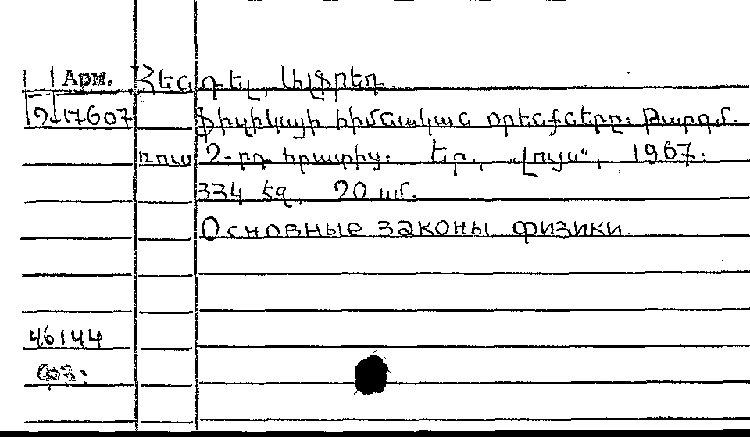 Арм. Հենդել, Ալֆրեդ
Զ-17607 Ֆիզիկայի հիմնական օրենքները. Թարգմ.
ռուս 2-րդ հրատից. Եր., „Լույս“, 1967.
334 էջ. 20 սմ.
Основные законы физики
46144